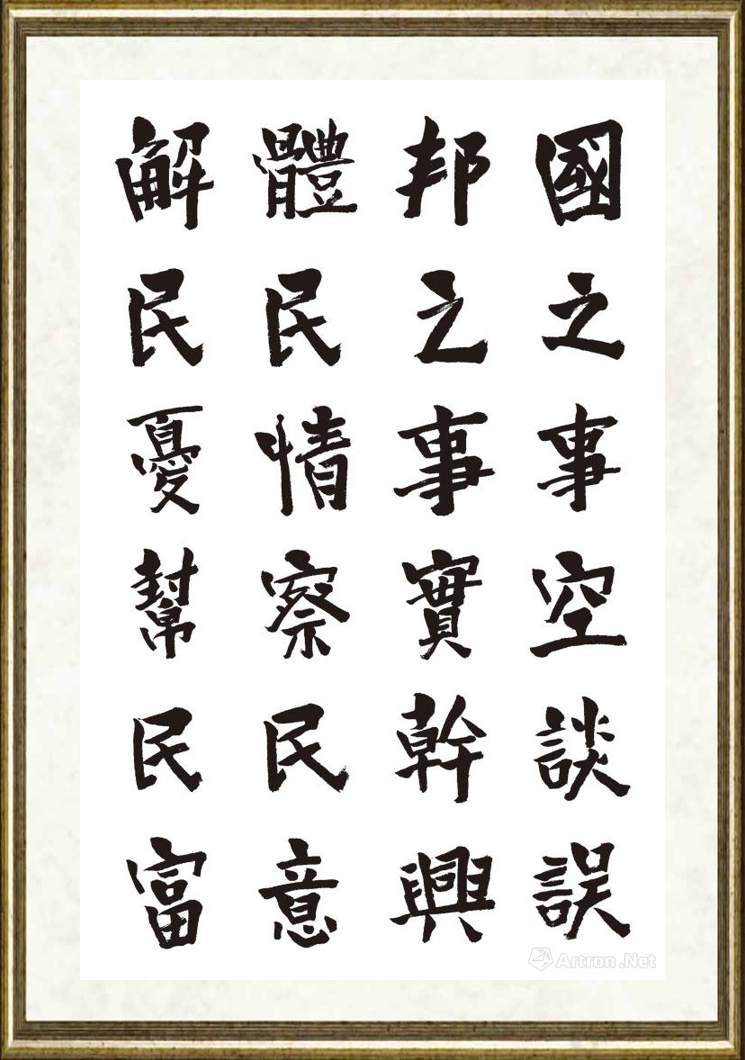 國之事空談誤
邦之事實幹興
體民情察民意
解民憂幫民富
Artron.Net